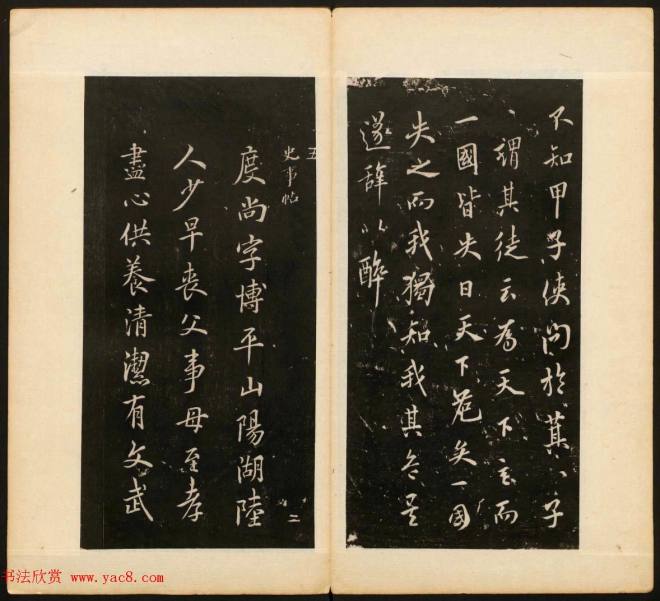 不知甲子使问於萁〻子
〻謂其徒云為天下主而
一國皆失日天下危矣一国
失之而我獨知我其危矣
遂辞以醉
五
史事帖
二
度尚字博平山陽湖陸
人少早喪父事母至孝
盡心供養清潔有文武
书法欣赏 www.yac8.com